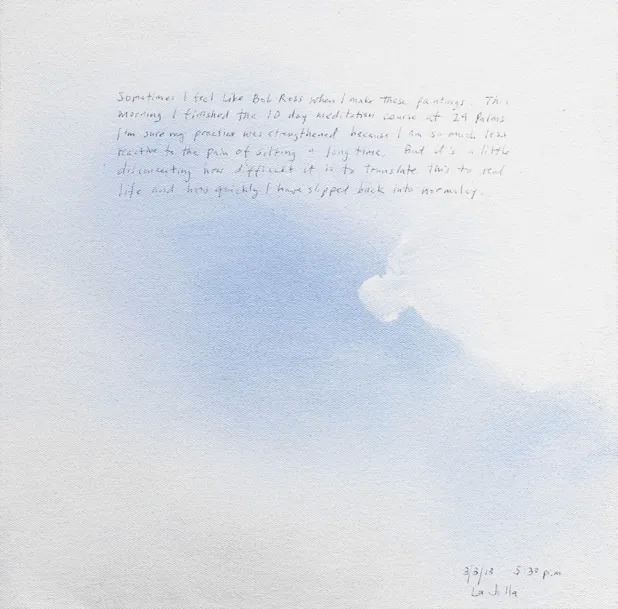 Sometimes I feel like Bob Ross when I make these paintings. This
morning I finished the 10 day meditation course at 29 Palms
I'm sure my practice was strengthened because I am so much less
reactive to the pain of sitting a long time. But it's a little
disconcerting how difficult it is to translate this to real
life and how quickly I have slipped back into normalcy.
3/3/13 5:30 p.m
La Jolla